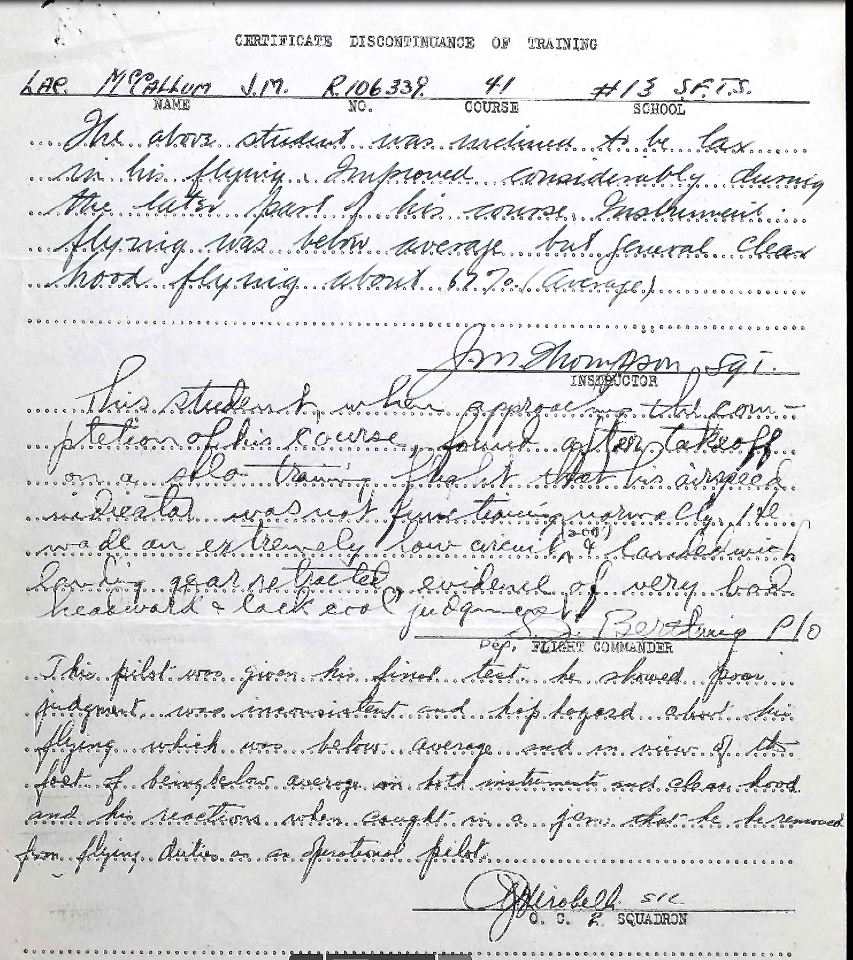 CERTIFICATE DISCONTINUANCE OF TRAINING
LAC. McCALLUM J.M. R.106339. 41 #13 S.F.T.S.
NAME NO. COURSE SCHOOL
The above student was inclined to be lax
in his flying. Improved considerably during
the later part of his course. Instrument
flying was below average but general clear
hood flying about 67% (average)
J M Thompson Sgt.
INSTRUCTOR
This student, when approaching the com-
pletion of his course, found after takeoff
on a solo training flight that his airspeed
indicator was not functioning normally. He
made an extremely low circuit & landed with
landing gear retracted, evidence of very bad
& lack cool judgment
P/O
Dep. FLIGHT COMMANDER
This pilot was given his final test he showed poor
judgment, was inconsistent and hap hazard about his
flying which was below average and in view of the
fact of being below average on both instruments and clear hood
and his reactions when caught in a jam; that he be removed
from flying duties as an operational pilot.
O. C. 2 SQUADRON